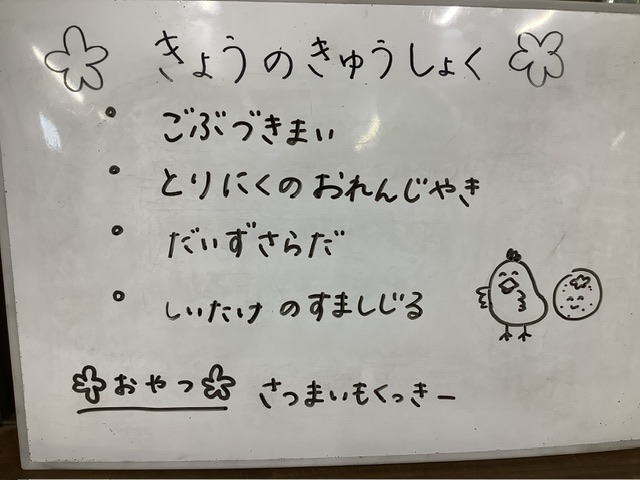 きょうのきゅうしょく
・ごぶづきまい
・とりにくのおれんじやき
・だいずさらだ
・しいたけのすましじる
おやつ さつまいもくっきー